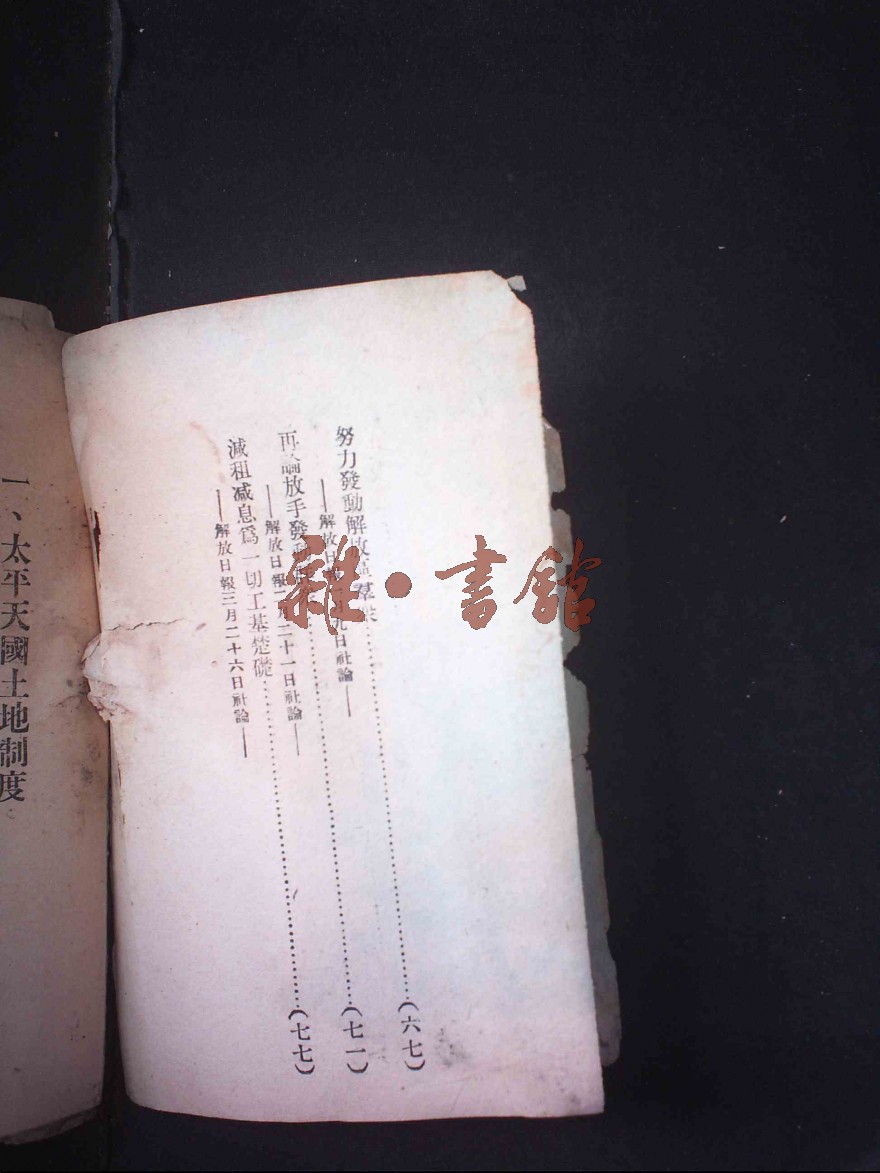 努力發動解放區羣眾……(六七)
——解放日報 月九日社論——
再論放手發動……(七一)
——解放日報 月二十一日社論——
減租減息爲一切工基楚礎……(七七)
——解放日報三月二十六日社論——
一、太平天國土地制度
雜·書館